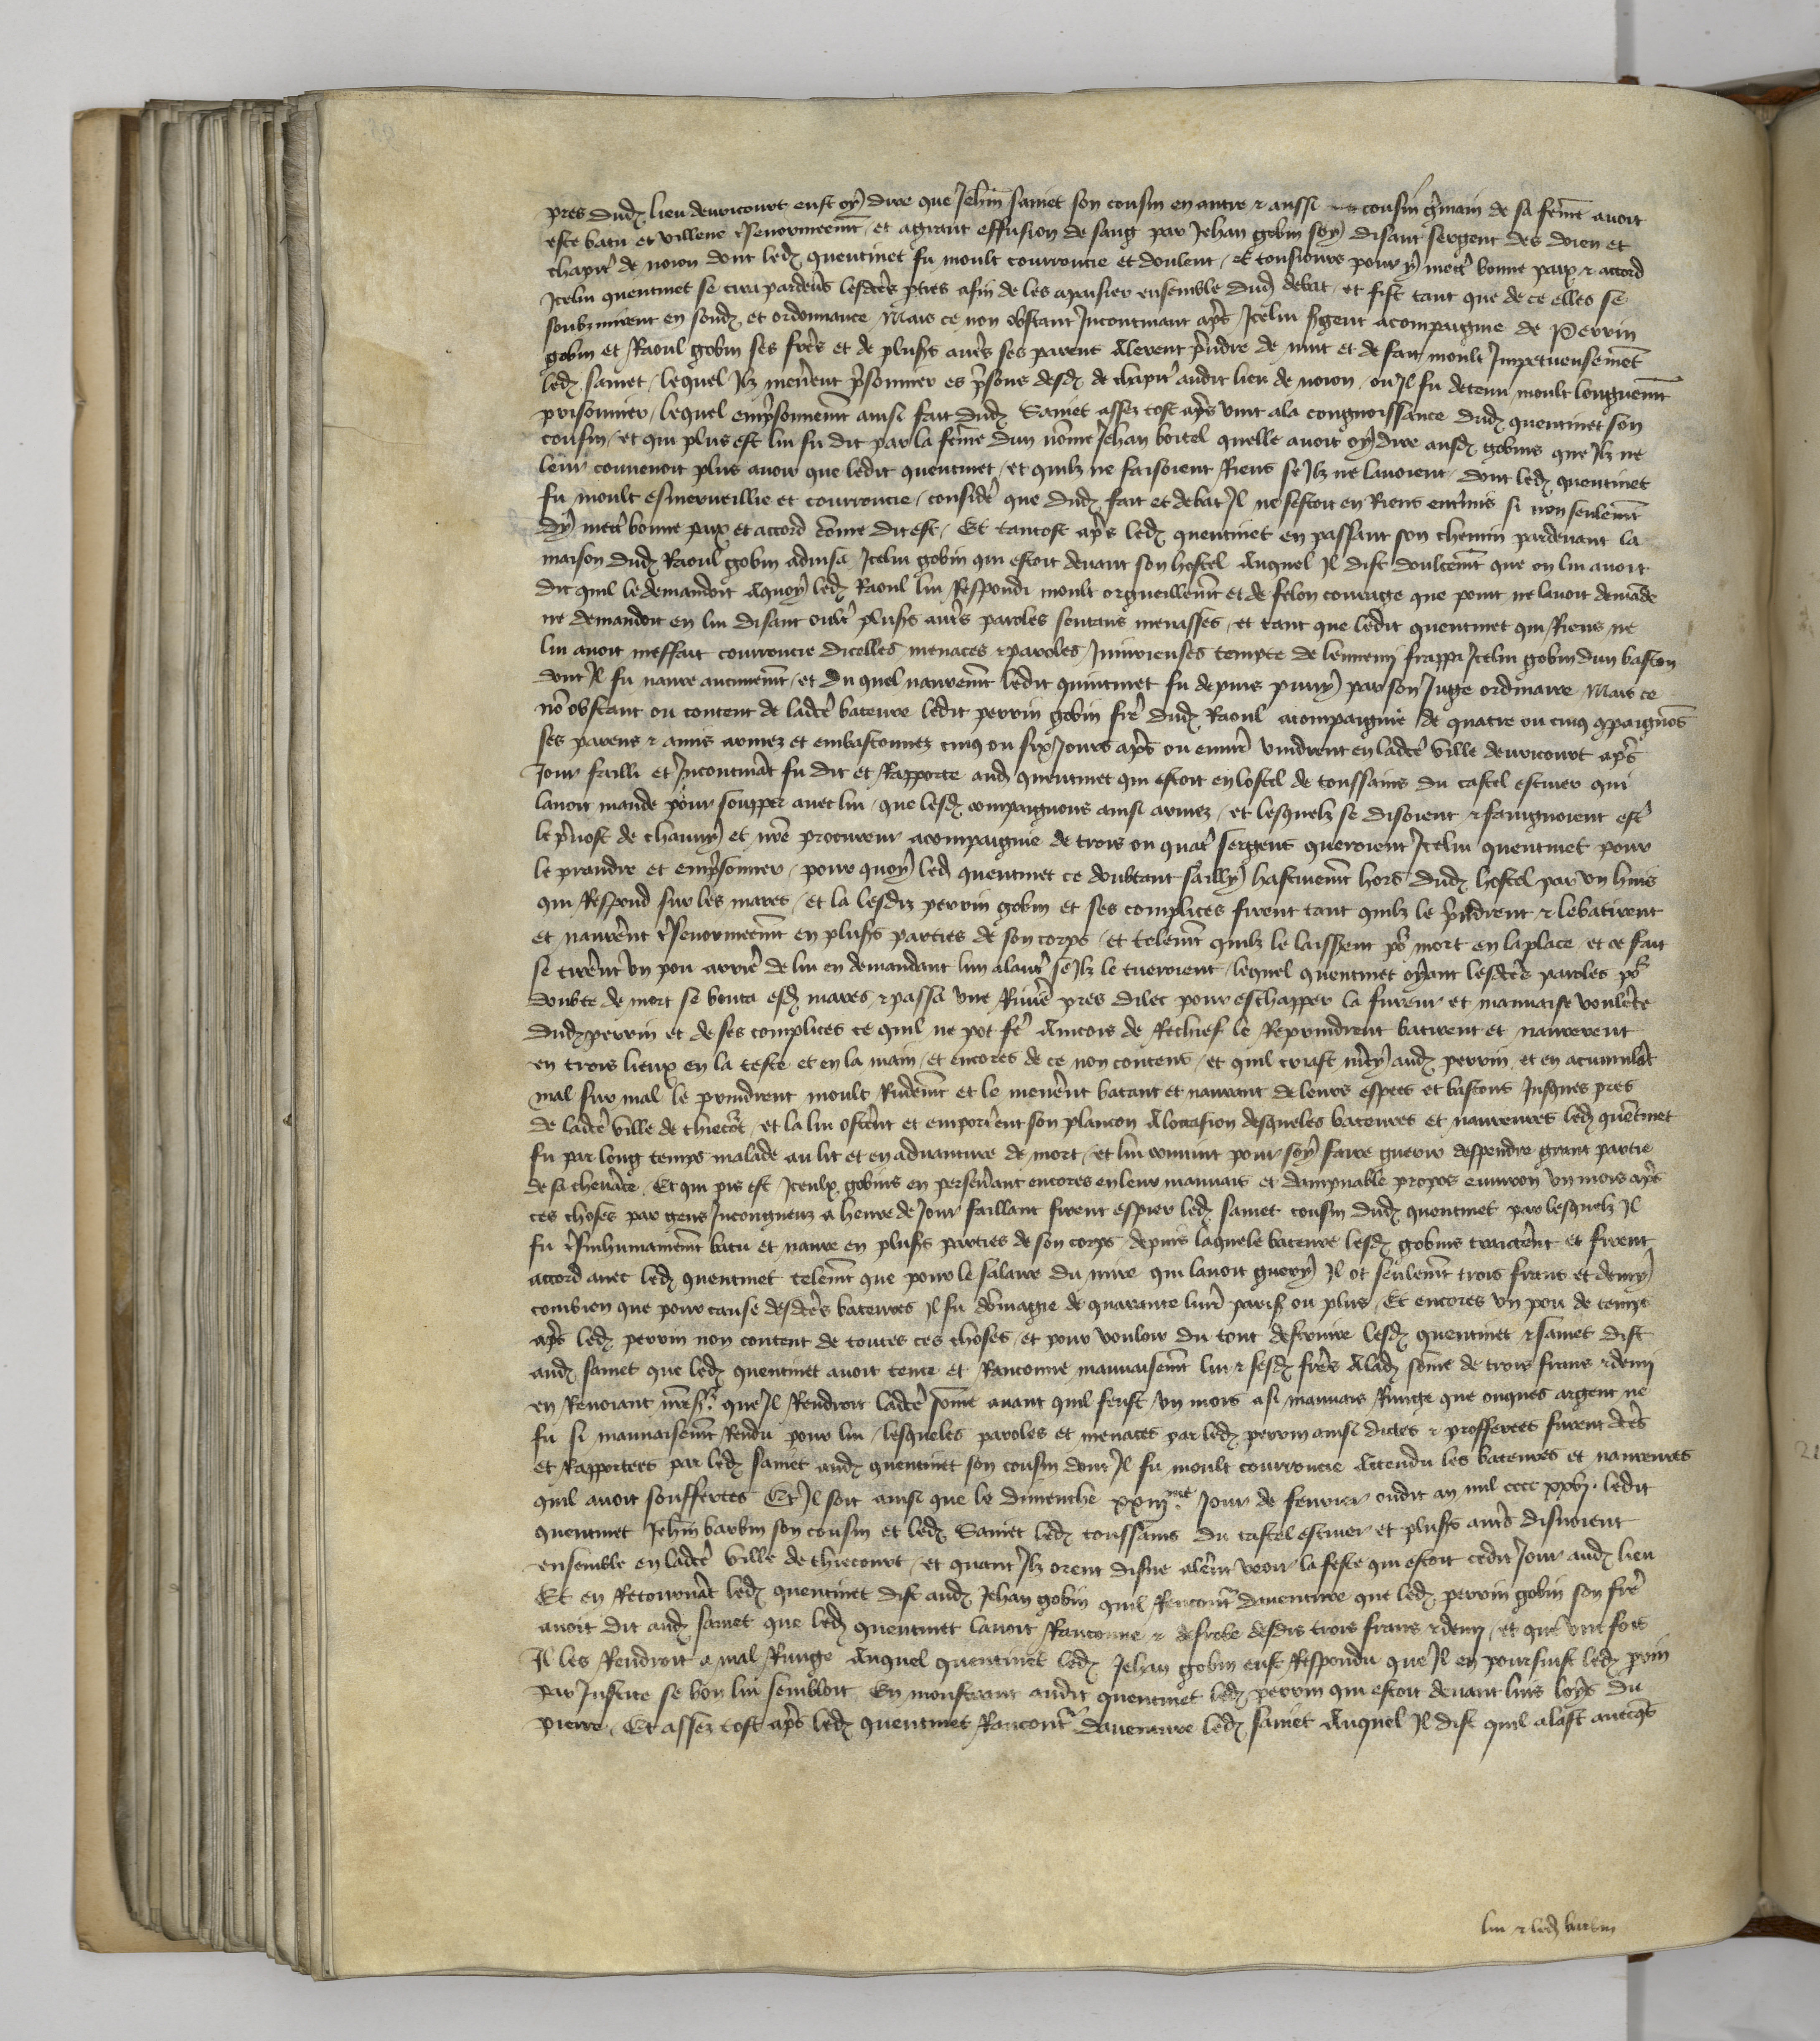 pres dud lieu deuricourt eust oy dire que Jehan samet son cousin en autre & aussi cousin gmain de sa feme auoit
este batu et villene tresenormeemt et a grant effusion de sang par Jehan gobin soy disant sergent des doien et
chapit de noion dont led quentinet fu moult courroucie et doulent / Et tousiours pour y mect bonne paix & accord
Jcelui quentinet se tira pardeus lesdces pties afin de les apaisier ensemble dud debat / et fist tant que de ce elles se
soubzmirent en sond et ordonnance / Mais ce non obstant Jncontinant aps Jcelui sgent acompaignie de Perrin
gobin et Raoul gobin ses freres et de plus autres ses parens Alerent prendre de nuit et de fait moult Jmpetueusemet
led samet / lequel Jlz menerent prisonnier es prisons desd de chapit audit lieu de noion / ou Jl fu detenu moult longuemt
prisonnier / lequel emprisonnemt ainsi fait dud Samet assez tost aps vint a la congnoissance dud quentinet son
cousin / et qui plus est lui fu dit par la feme dun nome Jehan boitel quelle auoit oy dire ausd gobins que Jlz ne
leur conuenoit plus auoir que ledit quentinet / et quilz ne faisoient Riens se Jlz ne lauoient / dont led quentinet
fu moult esmerueillie et courroucie / considere que dud fait et debat Jl ne sestoit en Riens entremis si non seulemt
dy mectre bonne paix et accord come dit est / Et tantost aps led quentinet en passant son chemin pardeuant la
maison dud Raoul gobin aduisa Jcelui gobin qui estoit deuant son hostel Auquel Jl dist doulcemt que on lui auoit
dit quil le demandoit Aquoy led Raoul lui Respondi moult orgueillemt et de felon courage que point ne lauoit demade
ne demandoit en lui disant oultre plus autres paroles sentans menasses / et tant que ledit quentinet qui Riens ne
lui auoit meffait courroucie dicelles menaces & paroles Jniurieuses tempte de lennemi frappa Jcelui gobin dun baston
dont Jl fu naure aucunemt / et du quel nauremt ledit quintinet fu depuis puny par son Juge ordinaire Mais ce
no obstant ou content de ladce bateure ledit perrin gobin frere dud Raoul acompaignie de quatre ou cinq compaignos
ses parens & amis armez et embastonnez cinq ou six Jours aps ou enuir vindrent en ladce ville deuricourt aps
Jour failli et Jncontinat fu dit et Rapporte aud quentinet qui estoit en lostel de toussains du castel escuier qui
lauoit mande pour soupper auec lui / que lesd compaignons ainsi armez / et lesquelz se disoient & faingnoient est
le preuost de chauny et nre procureur acompaignie de trois ou quatre sergens queroient Jcelui quentinet pour
le prandre et emprisonner / pour quoy led quentinet ce doubtant sailly hastiuemt hors dud hostel par vn huis
qui Respond sur les mares / et la lesdiz perrin gobin et ses complices firent tant quilz le prindrent & le batirent
et naurerent tresenormeemt en plus parties de son corps / et telemt quilz le laissrent po mort en la place / et ce fait
se tirerent vn pou arriere de lui en demandant lun a lautre se Jlz le tueroient / lequel quentinet oyant lesdces paroles po
doubte de mort se bouta esd mares & passa vne Riuiere pres dilec pour eschapper la fureur et mauuaise voulete
dud perrin et de ses complices ce quil ne pot fe Aincois de Rechief le Reprindrent batirent et naurerent
en trois lieux en la teste et en la main / et encores de ce non contens / et quil criast mercy aud perrin et en acumulat
mal sur mal le prindrent moult Rudemt et le menerent batant et naurant de leurs espees et bastons Jusques pres
de ladce ville de thiecot / et la lui osterent et emporterent son plancon A loccasion desqueles bateures et naureures led quentinet
fu par long temps malade au lit et en aduanture de mort / et lui conuint pour soy faire guerir despendre grant partie
de sa cheuance / Et qui pis est Jceulx gobins en perseuerant encores en leur mauuais et dampnable propos enuiron vn mois aps
ces choses par gens Jncongneuz a heure de Jour faillant firent espier led samet cousin dud quentinet par lesquelz Jl
fu tresinhumainemt batu et naure en plus parties de son corps depuis laquele bateure lesd gobins traicterent et firent
accord auec led quentinet telemt que pour le salaire du mire qui lauoit guery Jl ot seulemt trois frans et demy
combien que pour cause desdces bateures Jl fu domagie de quarante liures paris ou plus / Et encores vn pou de temps
aps led perrin non content de toutes ces choses / et pour vouloir du tout destruire lesd quentinet & samet dist
aud samet que led quentinet auoit tence et Ranconne mauuaisemt lui & sesd freres A lad some de trois frans & demi
en Renoiant que Jl Rendroit ladce some auant quil feust vn mois a si mauuais Runge que onques argent ne
fu si mauuaisemt Rendu pour lui / lesqueles paroles et menaces par led perrin ainsi dictes & profferees furent dces
et Rapportees par led samet aud quentinet son cousin dont Jl fu moult courroucie Attendu les bateures et naureures
quil auoit souffertes Et Jl soit ainsi que le dimenche xxiiime Jour de feurier oudit an mil cccc xxvj ledit
quentinet Jehan barbin son cousin et led Samet led toussains du castel escuier et plus autres disnoient
ensemble en ladce ville de thiecourt / et quant Jlz orent disne alerent veoir la feste qui estoit cedit Jour aud lieu
Et en Retournat led quentinet dist aud Jehan gobin quil Rencontra dauenture que led perrin gobin son frere
auoit dit aud samet que led quentinet lauoit Ranconne & desrobe desdis trois frans & demi / et que vne fois
Jl les Rendroit a mal Runge Auquel quentinet led Jehan gobin eust Respondu que Jl en poursuist led prin
par Justice se bon lui sembloit En monstrant audit quentinet led perrin qui estoit deuant luis loys du
pierre / Et assez tost aps led quentinet Rancontra dauenture led samet Auquel Jl dist quil alast auecqs
lui & led barbin